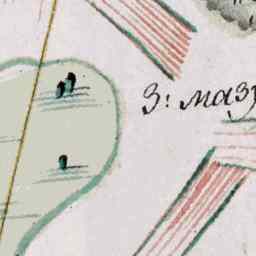 З: мазу